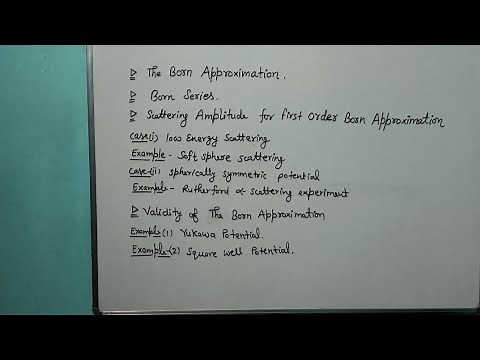 The Born Approximation.
Born Series.
Scattering Amplitude for first Order Born Approximation
Case(i) low Energy Scattering
Example- Soft sphere scattering
Case-(ii) spherically symmetric potential
Example- Rutherford α- scattering experiment
Validity of The Born Approximation
Example(1) Yukawa Potential.
Example-(2) Square well Potential.